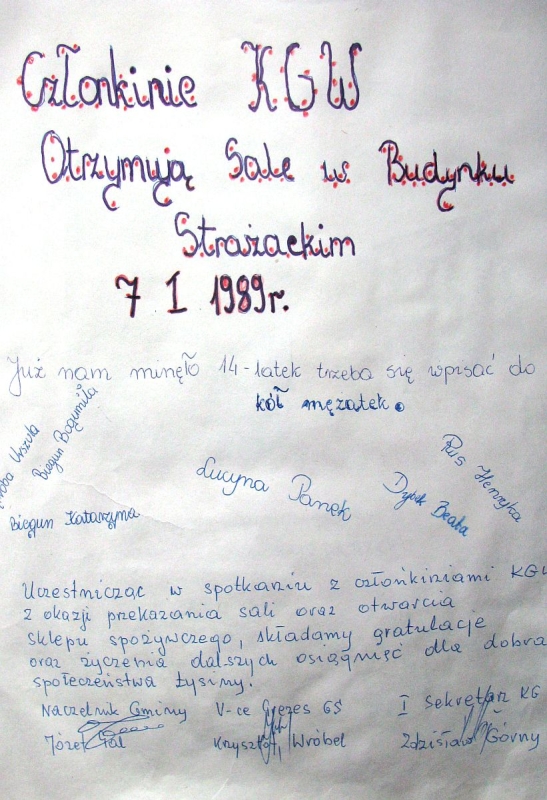 Członkinie KGW
Otrzymują Sale w Budynku
Strażackim
7 I 1989r.
Już nam minęło 14-latek trzeba się wpisać do
kół mężatek.
Urszula
Biegun Bogumiła
Biegun Katarzyna
Lucyna Panek
Dybek Beata
Rus Henryka
Uczestnicząc w spotkaniu z członkiniami KGW
z okazji przekazania sali oraz otwarcia
sklepu spożywczego, składamy gratulacje
oraz życzenia dalszych osiągnięć dla dobra
społeczeństwa Łysiny.
Naczelnik Gminy V-ce Prezes GS I Sekretarz KG
Józef Gal Krzysztof Wróbel Zdzisław Górny